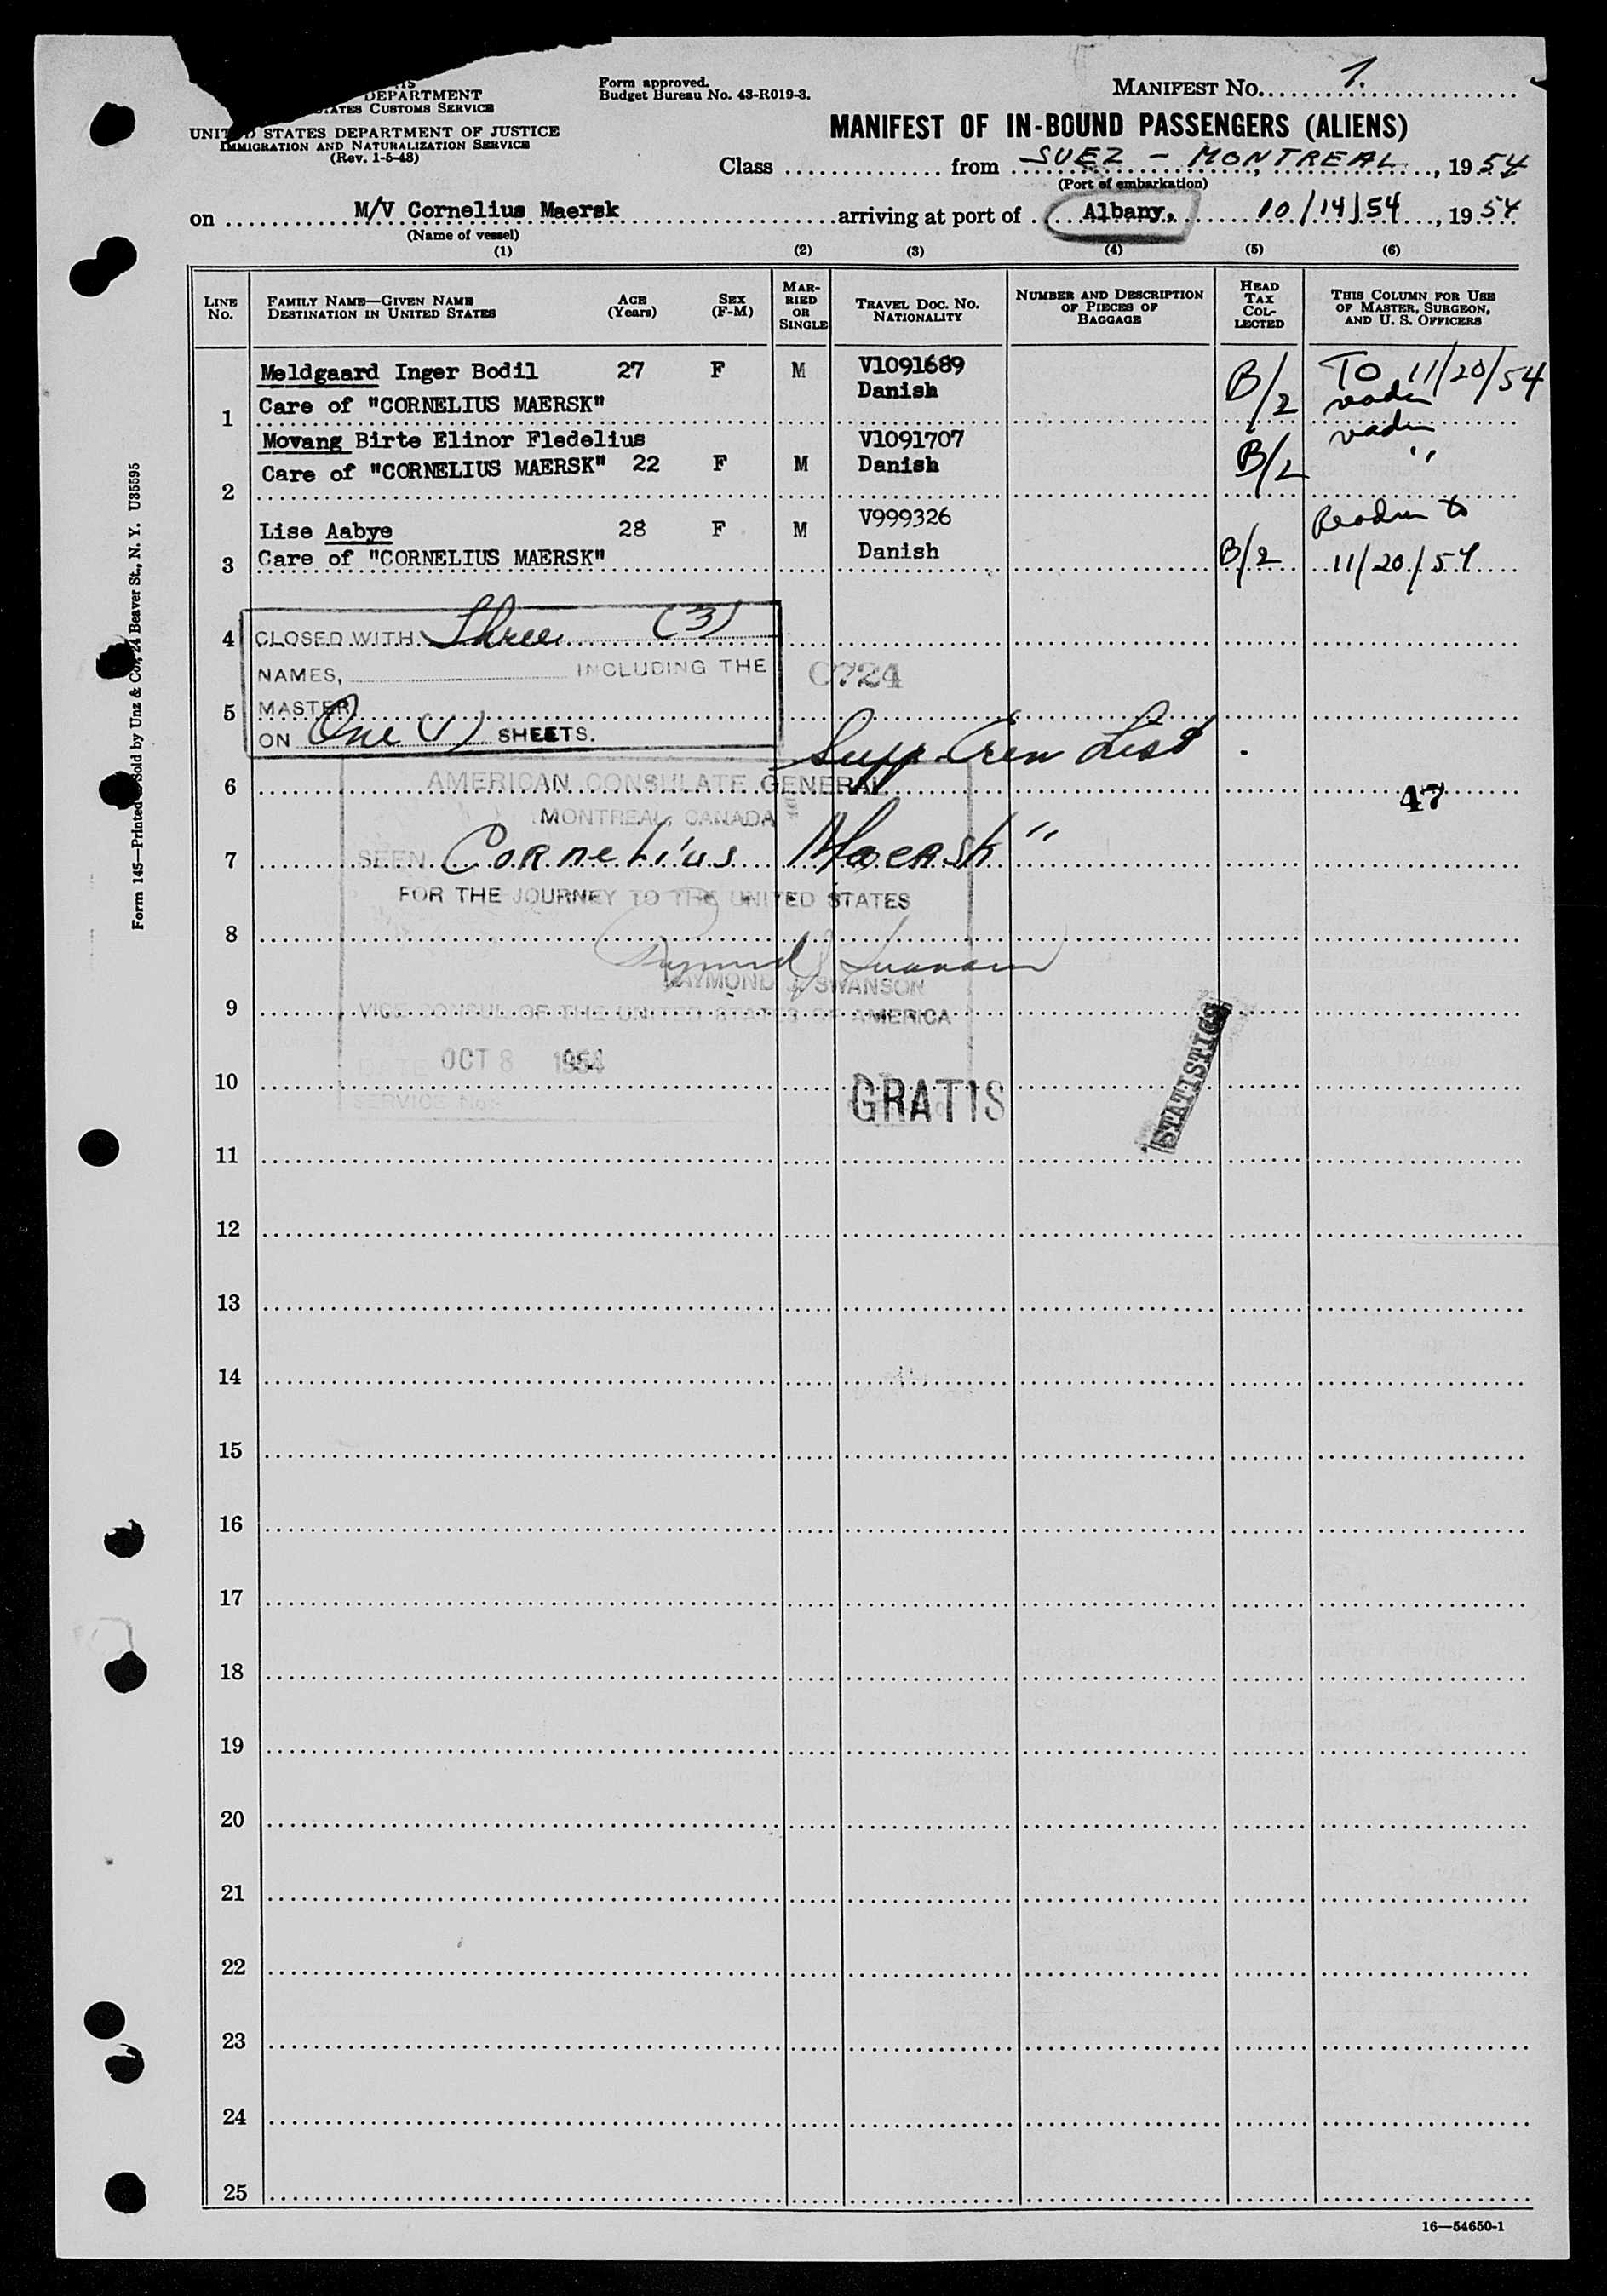 DEPARTMENT
STATES CUSTOMS SERVICE
UNITED STATES DEPARTMENT OF JUSTICE
IMMIGRATION AND NATURALIZATION SERVICE
(Rev. 1-5-48)
Form approved.
Budget Bureau No. 43-R019-3.
MANIFEST NO. 1.
MANIFEST OF IN-BOUND PASSENGERS (ALIENS)
Class from SUEZ - MONTREAL, 1954
(Port of embarkation)
on M/V Cornelius Maersk arriving at port of Albany, 10/14/54, 1954
(Name of vessel)
(1) (2) (3) (4) (5) (6)
LINE NO.
FAMILY NAME—GIVEN NAME
DESTINATION IN UNITED STATES
AGE (Years)
SEX (F-M)
MARRIED OR SINGLE
TRAVEL DOC. NO.
NATIONALITY
NUMBER AND DESCRIPTION
OF PIECES OF
BAGGAGE
HEAD TAX COLLECTED
THIS COLUMN FOR USE
OF MASTER, SURGEON,
AND U. S. OFFICERS
Meldgaard Inger Bodil 27 F M V1091689 B/2 TO 11/20/54
1 Care of "CORNELIUS MAERSK" Danish
Movang Birte Elinor Fledelius V1091707
2 Care of "CORNELIUS MAERSK" 22 F M Danish B/2 "
Lise Aabye 28 F M V999326
3 Care of "CORNELIUS MAERSK" Danish B/2 11/20/54
4 CLOSED WITH Three (3)
NAMES, INCLUDING THE
C724
5 MASTER
ON One (1) SHEETS.
Supp Crew List.
6 AMERICAN CONSULATE GENERAL
47
MONTREAL, CANADA
7 SEEN Cornelius Maersk"
FOR THE JOURNEY TO THE UNITED STATES
8
RAYMOND J. SWANSON
9 VICE CONSUL OF THE UNITED STATES OF AMERICA
DATE OCT 8 1954
10 GRATIS
SERVICE No.
STATISTICS
11
12
13
14
15
16
17
18
19
20
21
22
23
24
25
16—54650-1
Form 145—Printed & Sold by Unz & Co., 24 Beaver St., N. Y. U35595